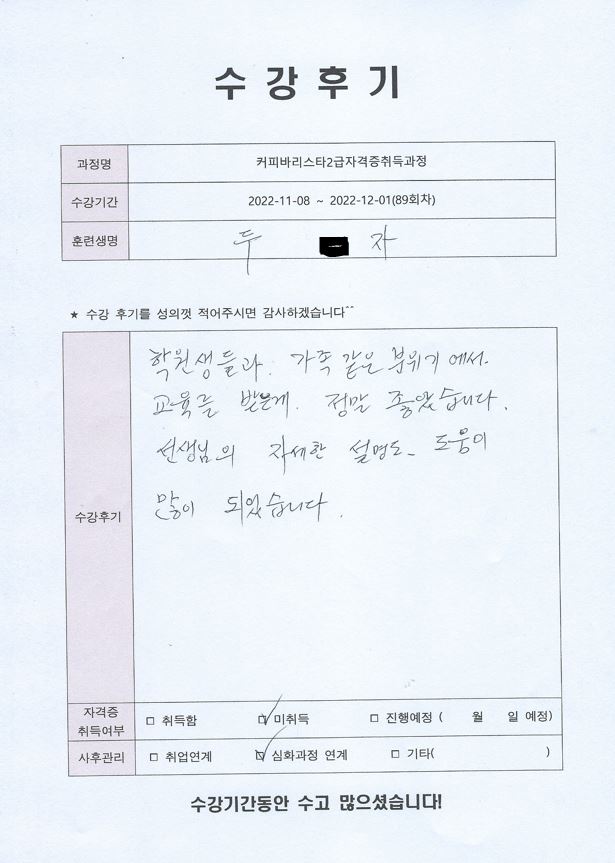 수강후기
과정명 커피바리스타2급자격증취득과정
수강기간 2022-11-08 ~ 2022-12-01(89회차)
훈련생명 두 자
★ 수강 후기를 성의껏 적어주시면 감사하겠습니다^^
학원생들과. 가족같은 분위기에서.
교육를 받은게. 정말 좋았습니다.
선생님의 자세한 설명도. 도움이
수강후기
많이 되었습니다.
자격증 취득여부 □ 취득함 ☑ 미취득 □ 진행예정 ( 월 일 예정)
사후관리 □ 취업연계 ☑ 심화과정 연계 □ 기타( )
수강기간동안 수고 많으셨습니다!